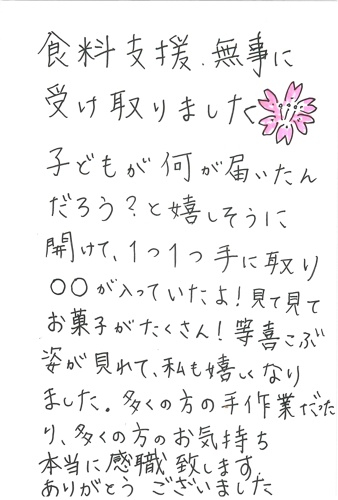 食料支援、無事に
受け取りました
子どもが何が届いたん
だろう?と嬉しそうに
開けて、1つ1つ手に取り
〇〇が入っていたよ!見て見て
お菓子がたくさん!等喜こぶ
姿が見れて、私も嬉しくなり
ました。多くの方の手作業だった
り、多くの方のお気持ち
本当に感職致します。
ありがとうございました